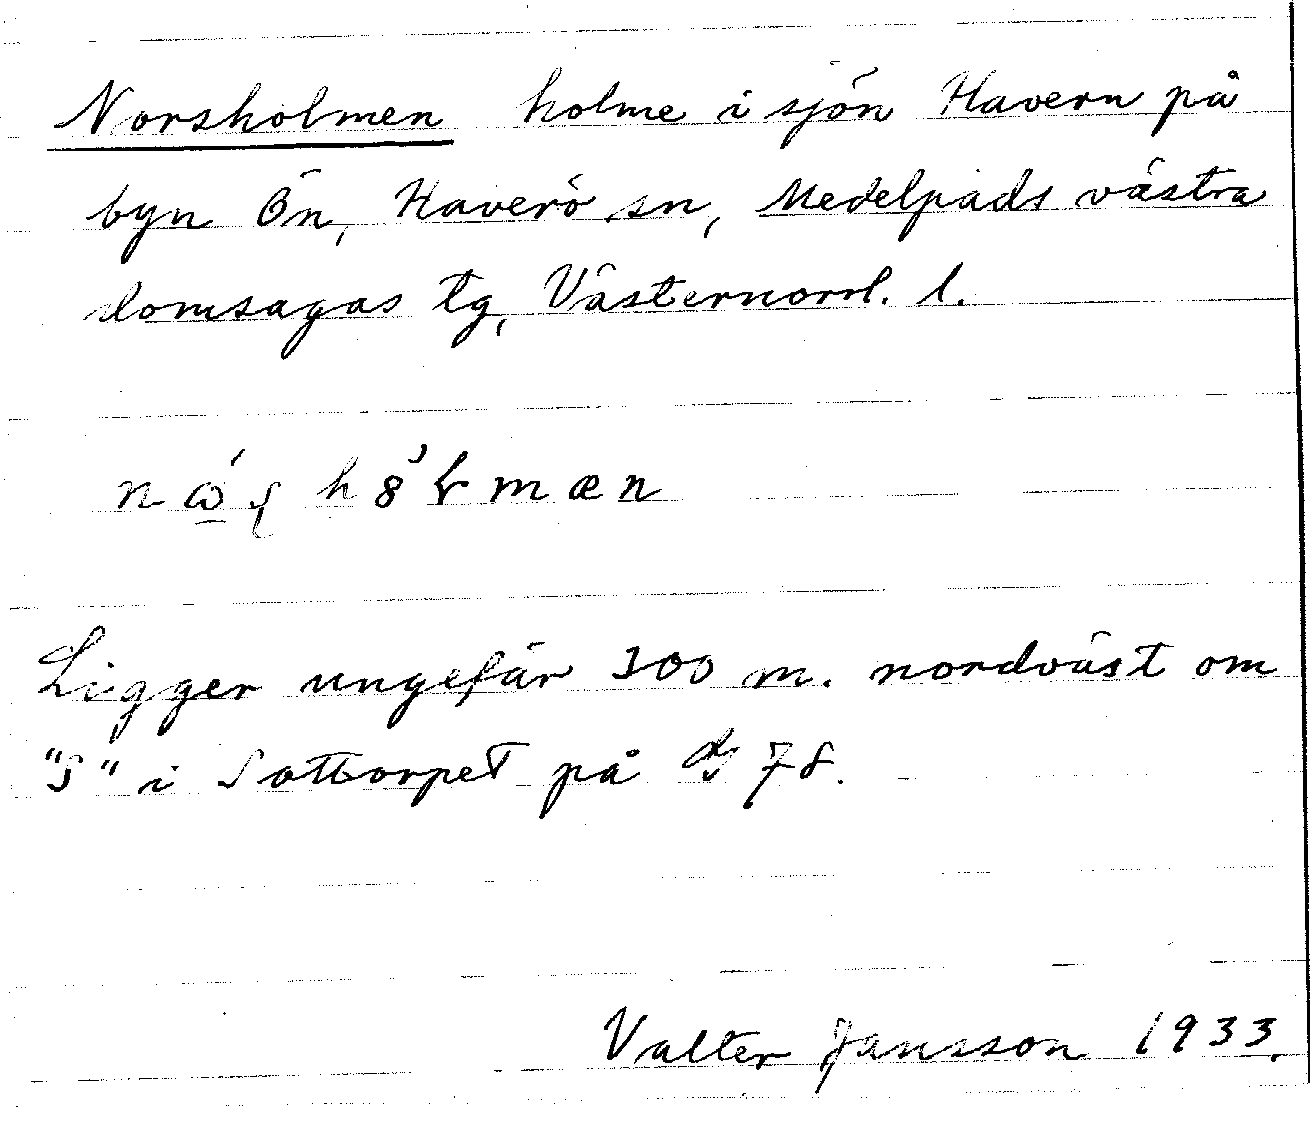 Norsholmen holme i sjön Havern på
byn Ön, Haverö sn, Medelpads västra
domsagas tg, Västernorrl. l.
Ligger ungefär 300 m. nordväst om
"S" i Sottorpet på 78.
Valter Jansson 1933.